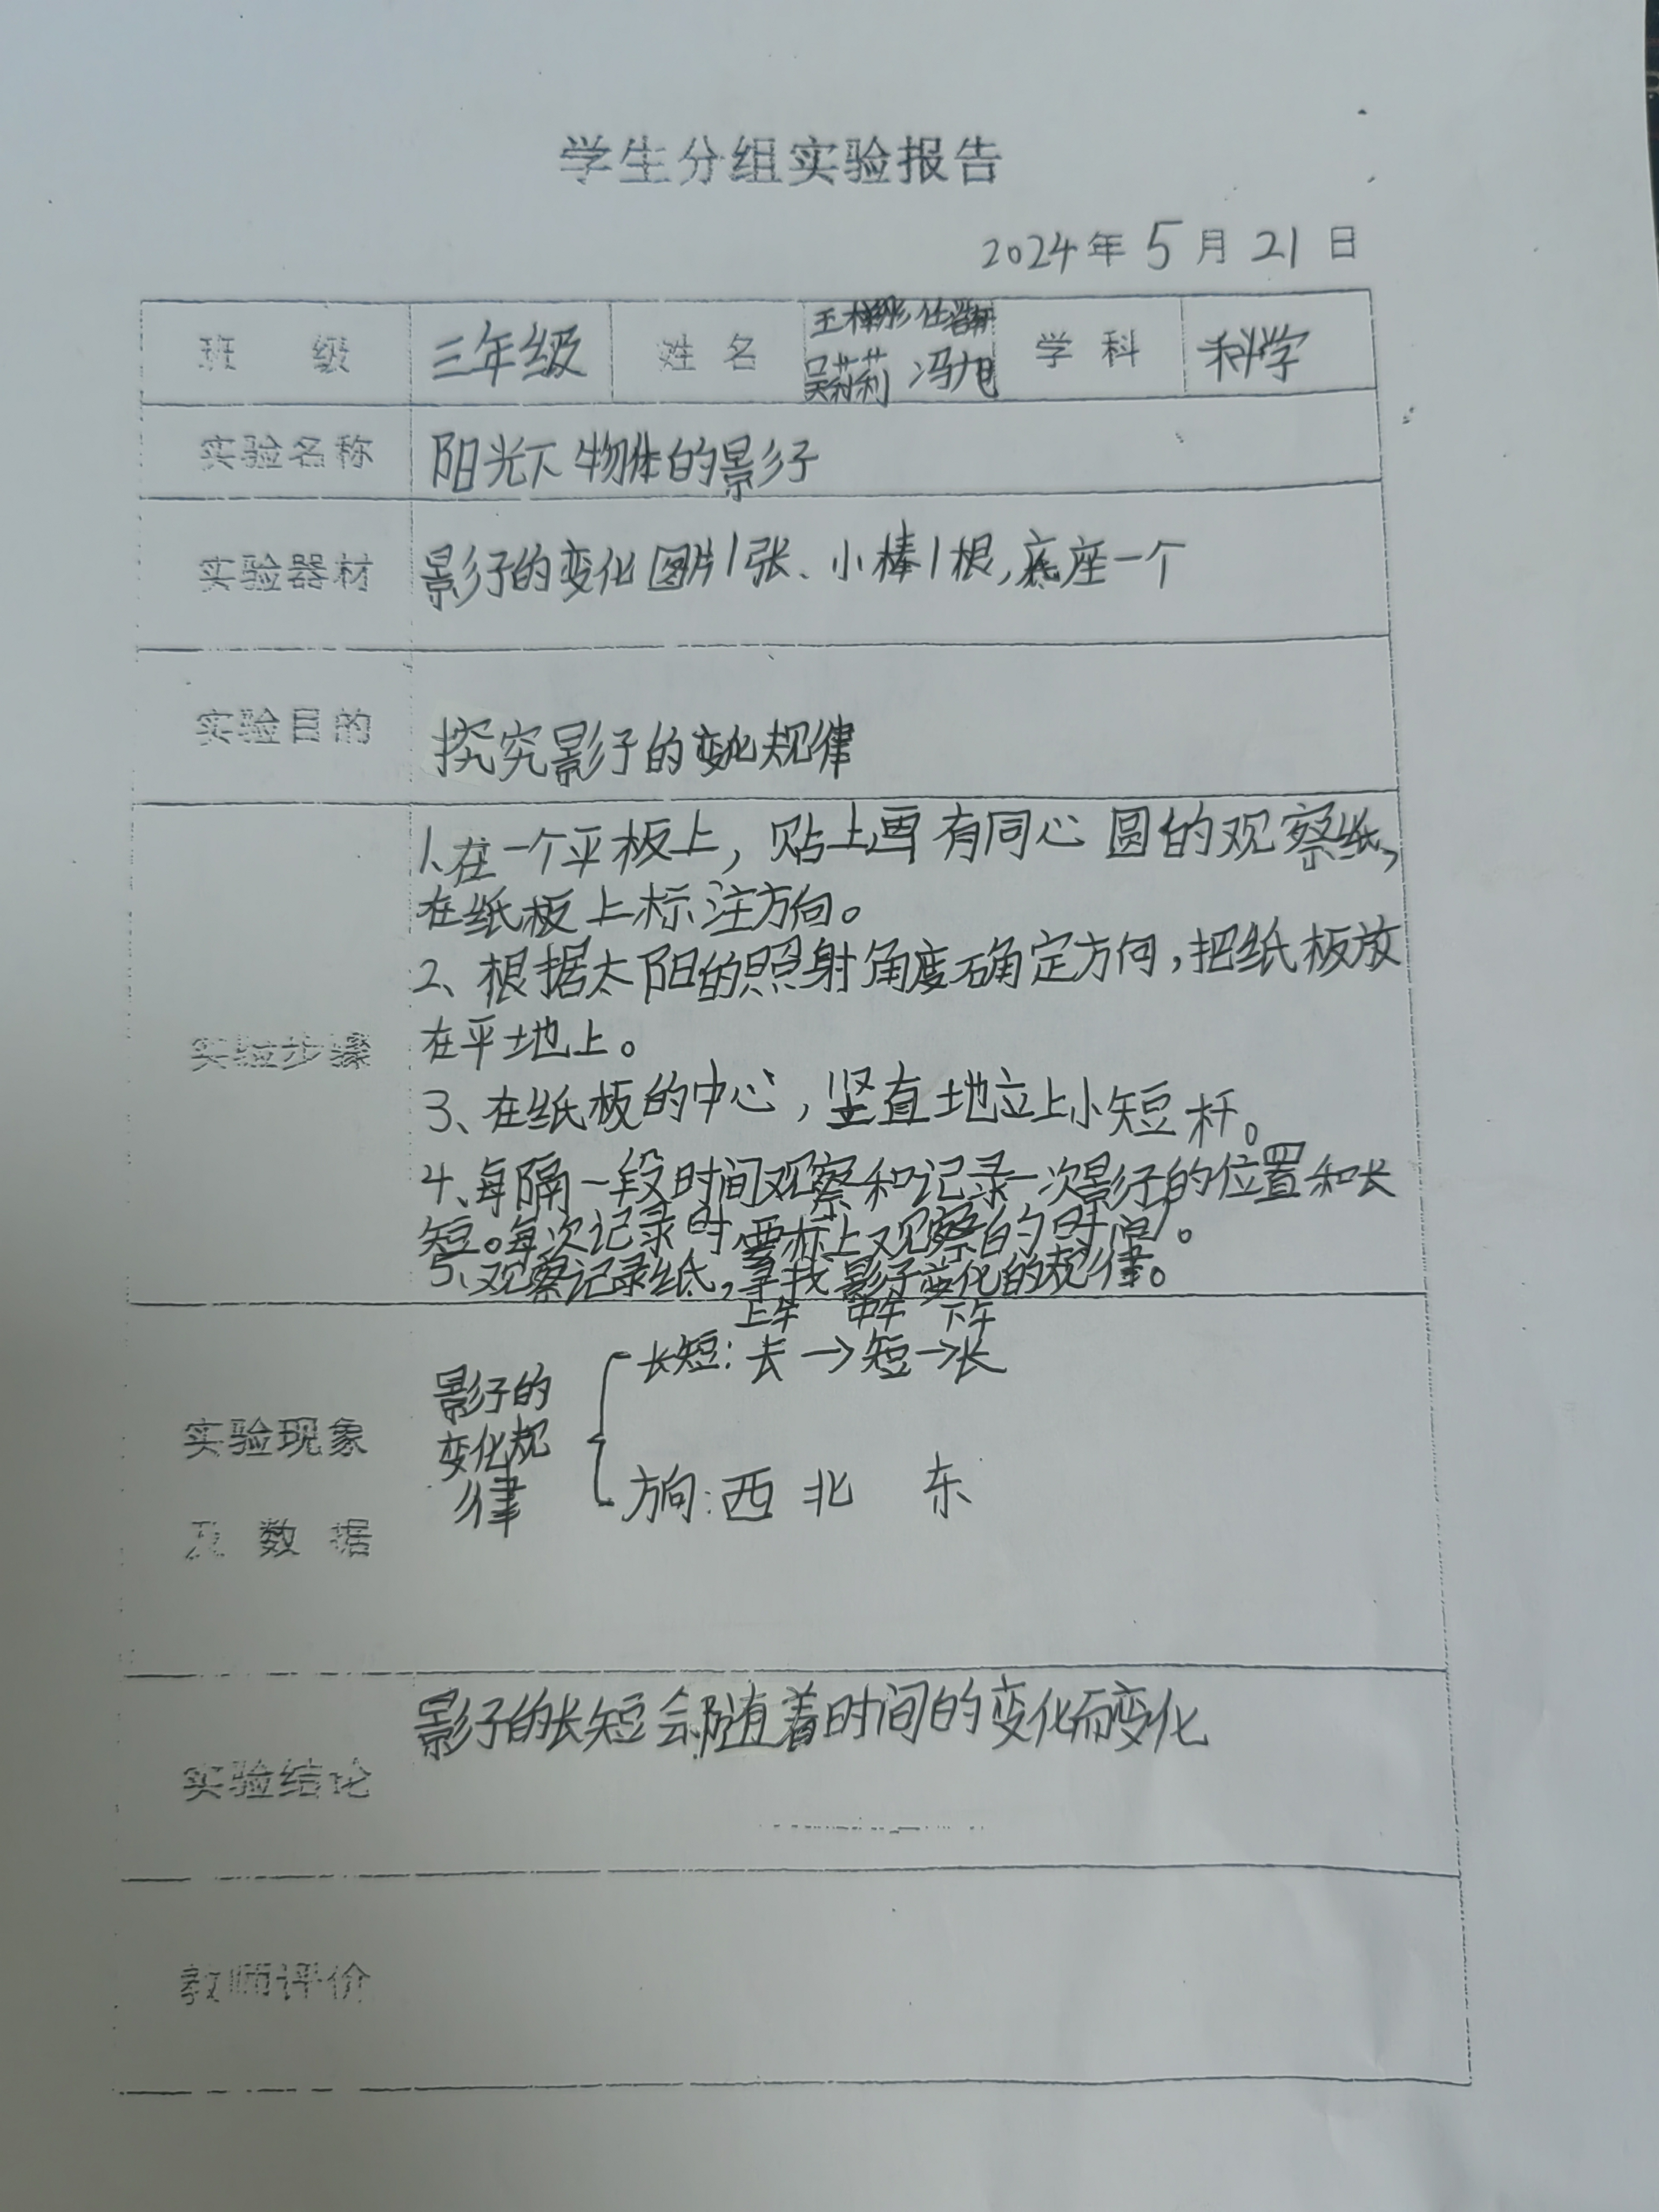 学生分组实验报告
2024年 5 月 21 日
班 级 三年级 姓 名 吴莉莉 冯旭 学 科 科学
实验名称 阳光下物体的影子
实验器材 影子的变化图片1张、小棒1根,底座一个
实验目的 探究影子的变化规律
实验步骤
1、在一个平板上，贴上画有同心圆的观察纸，
在纸板上标注方向。
2、根据太阳的照射角度确定方向，把纸板放
在平地上。
3、在纸板的中心，坚直地立上小短杆。
4、每隔一段时间观察和记录一次影子的位置和长
短。每次记录时要标上观察的时间。
5、观察记录纸，寻找影子变化的规律。
实验现象
及 数 据
影子的
变化规
律
上午 中午 下午
长短：长→短→长
方向：西 北 东
实验结论 影子的长短会随着时间的变化而变化
教师评价